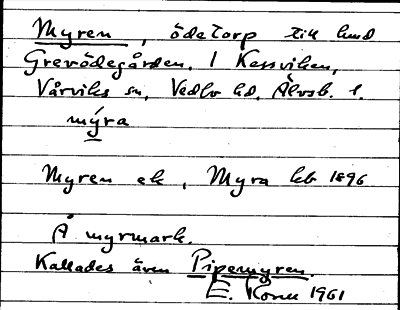 Myren, ödetorp till hmd
Grevödegården, 1 Kassviken,
Vårviks sn, Vedbo hd, Älvsb. l.
mýra
Myren ek, Myra kb 1896
Å myrmark.
Kallades även Pipemyren.
E. 1961